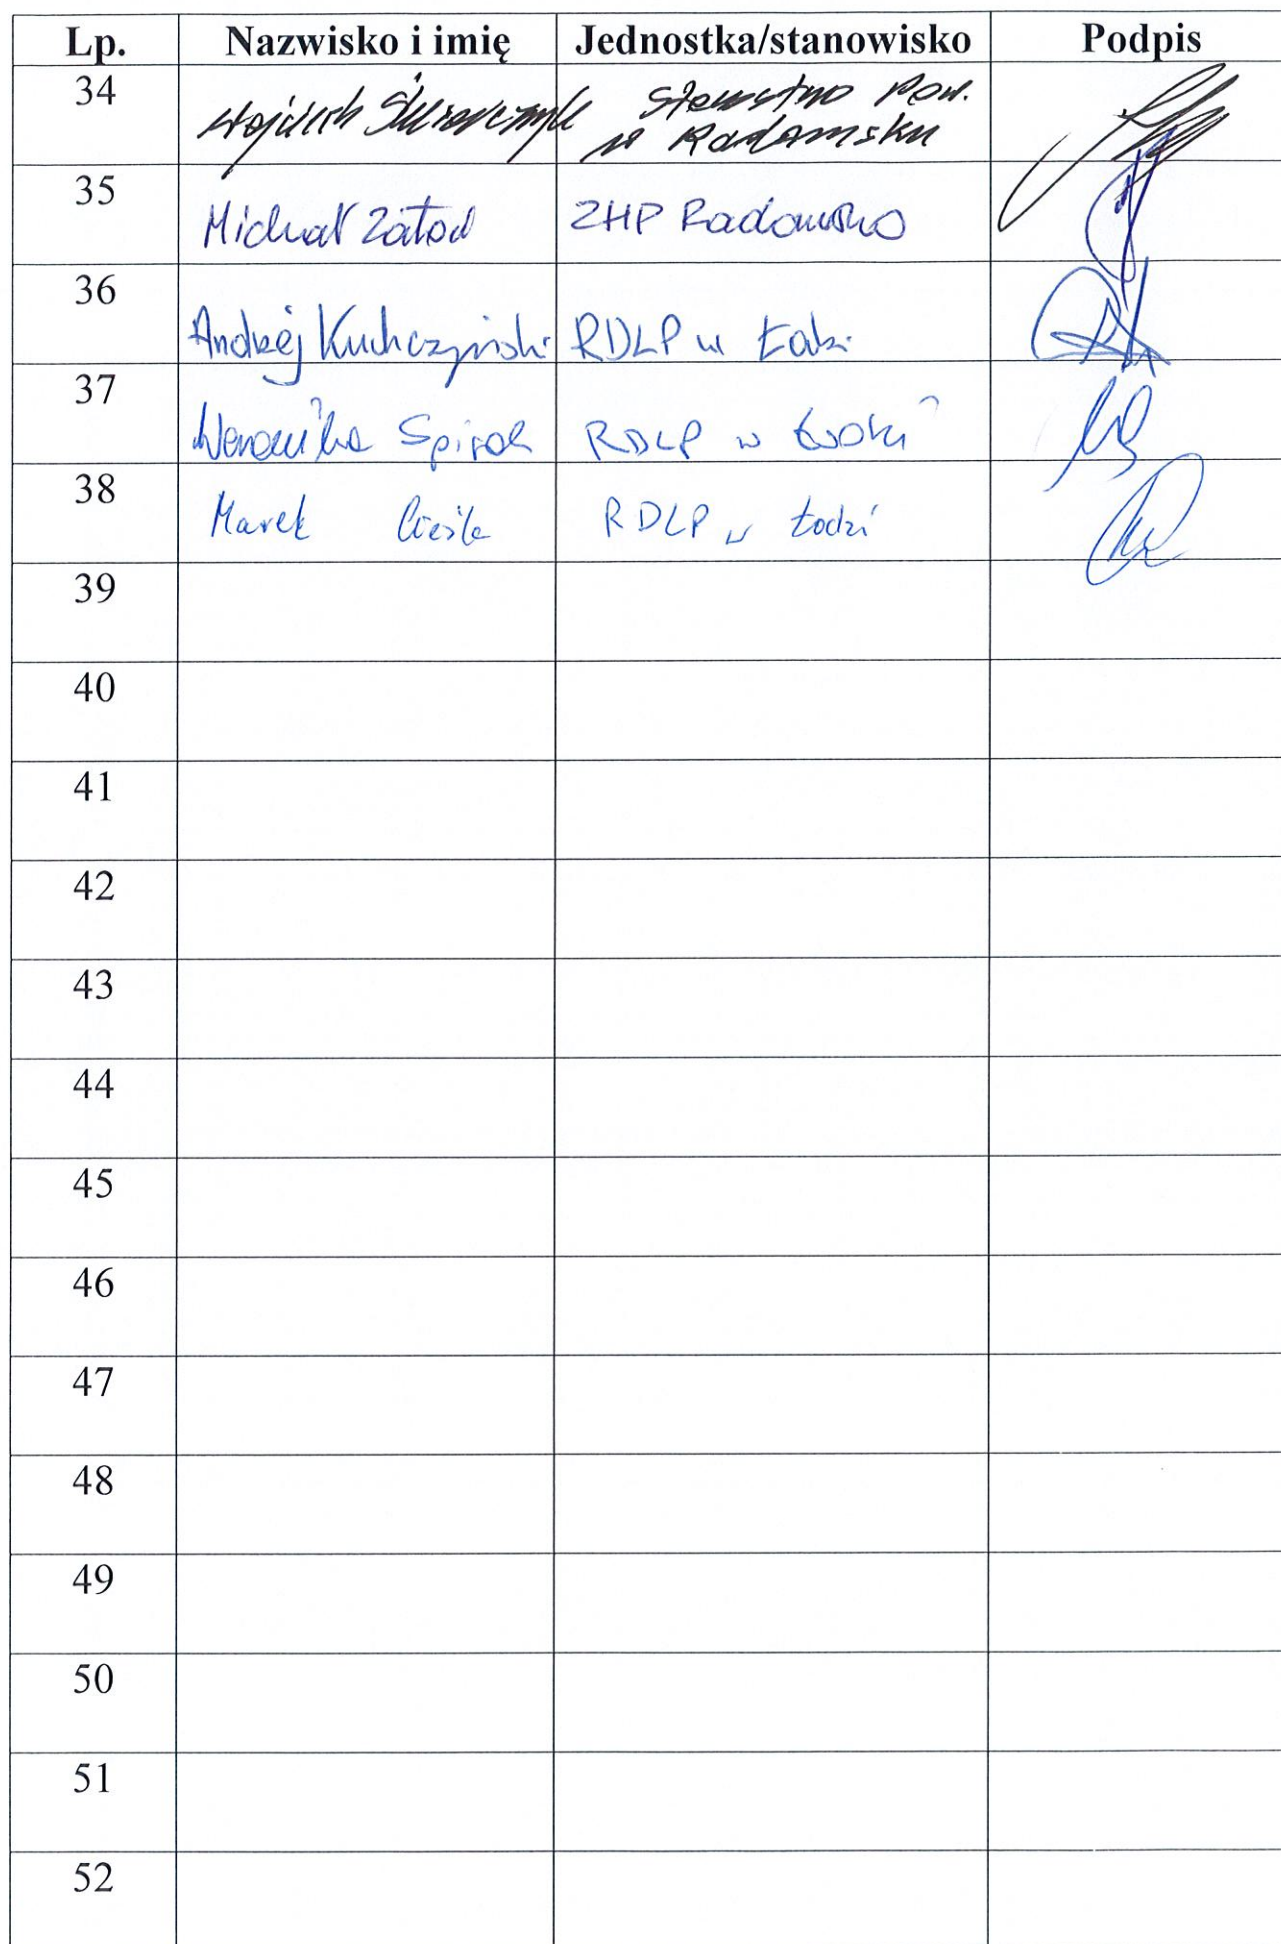 Lp. Nazwisko i imię Jednostka/stanowisko Podpis
34 Wojciech Ślusarczyk Starostwo Pow.
w Radomsku
35 Michał Zatoń ZHP Radomsko
36 Andrzej Kuchczyński RDLP w Łodzi
37 Weronika Spirak RDLP w Łodzi
38 Marek Cieśla RDLP w Łodzi
39
40
41
42
43
44
45
46
47
48
49
50
51
52